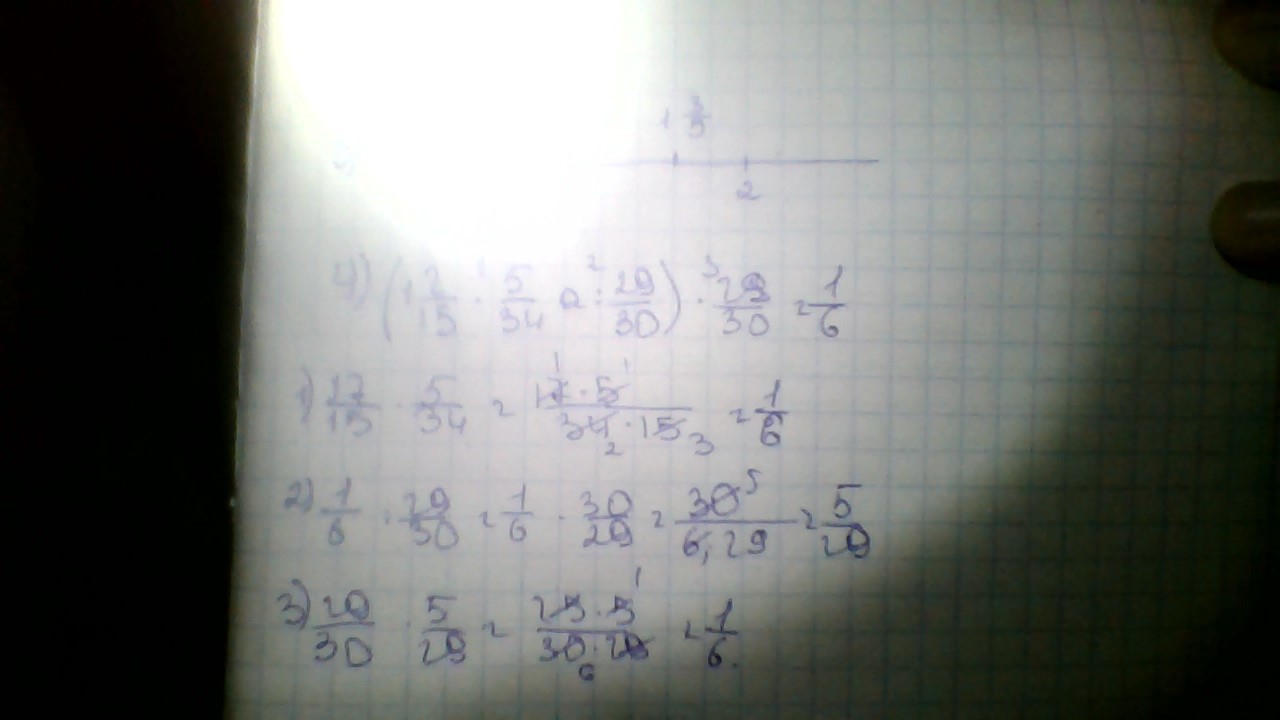 1 3/5
2
4) (1 2/15 · 5/34 : 29/30) · 29/30 = 1/6
1) 17/15 · 5/34 = 17·5/34·15 = 1/6
2) 1/6 : 29/30 = 1/6 · 30/29 = 30/6·29 = 5/29
3) 29/30 · 5/29 = 29·5/30·29 = 1/6.